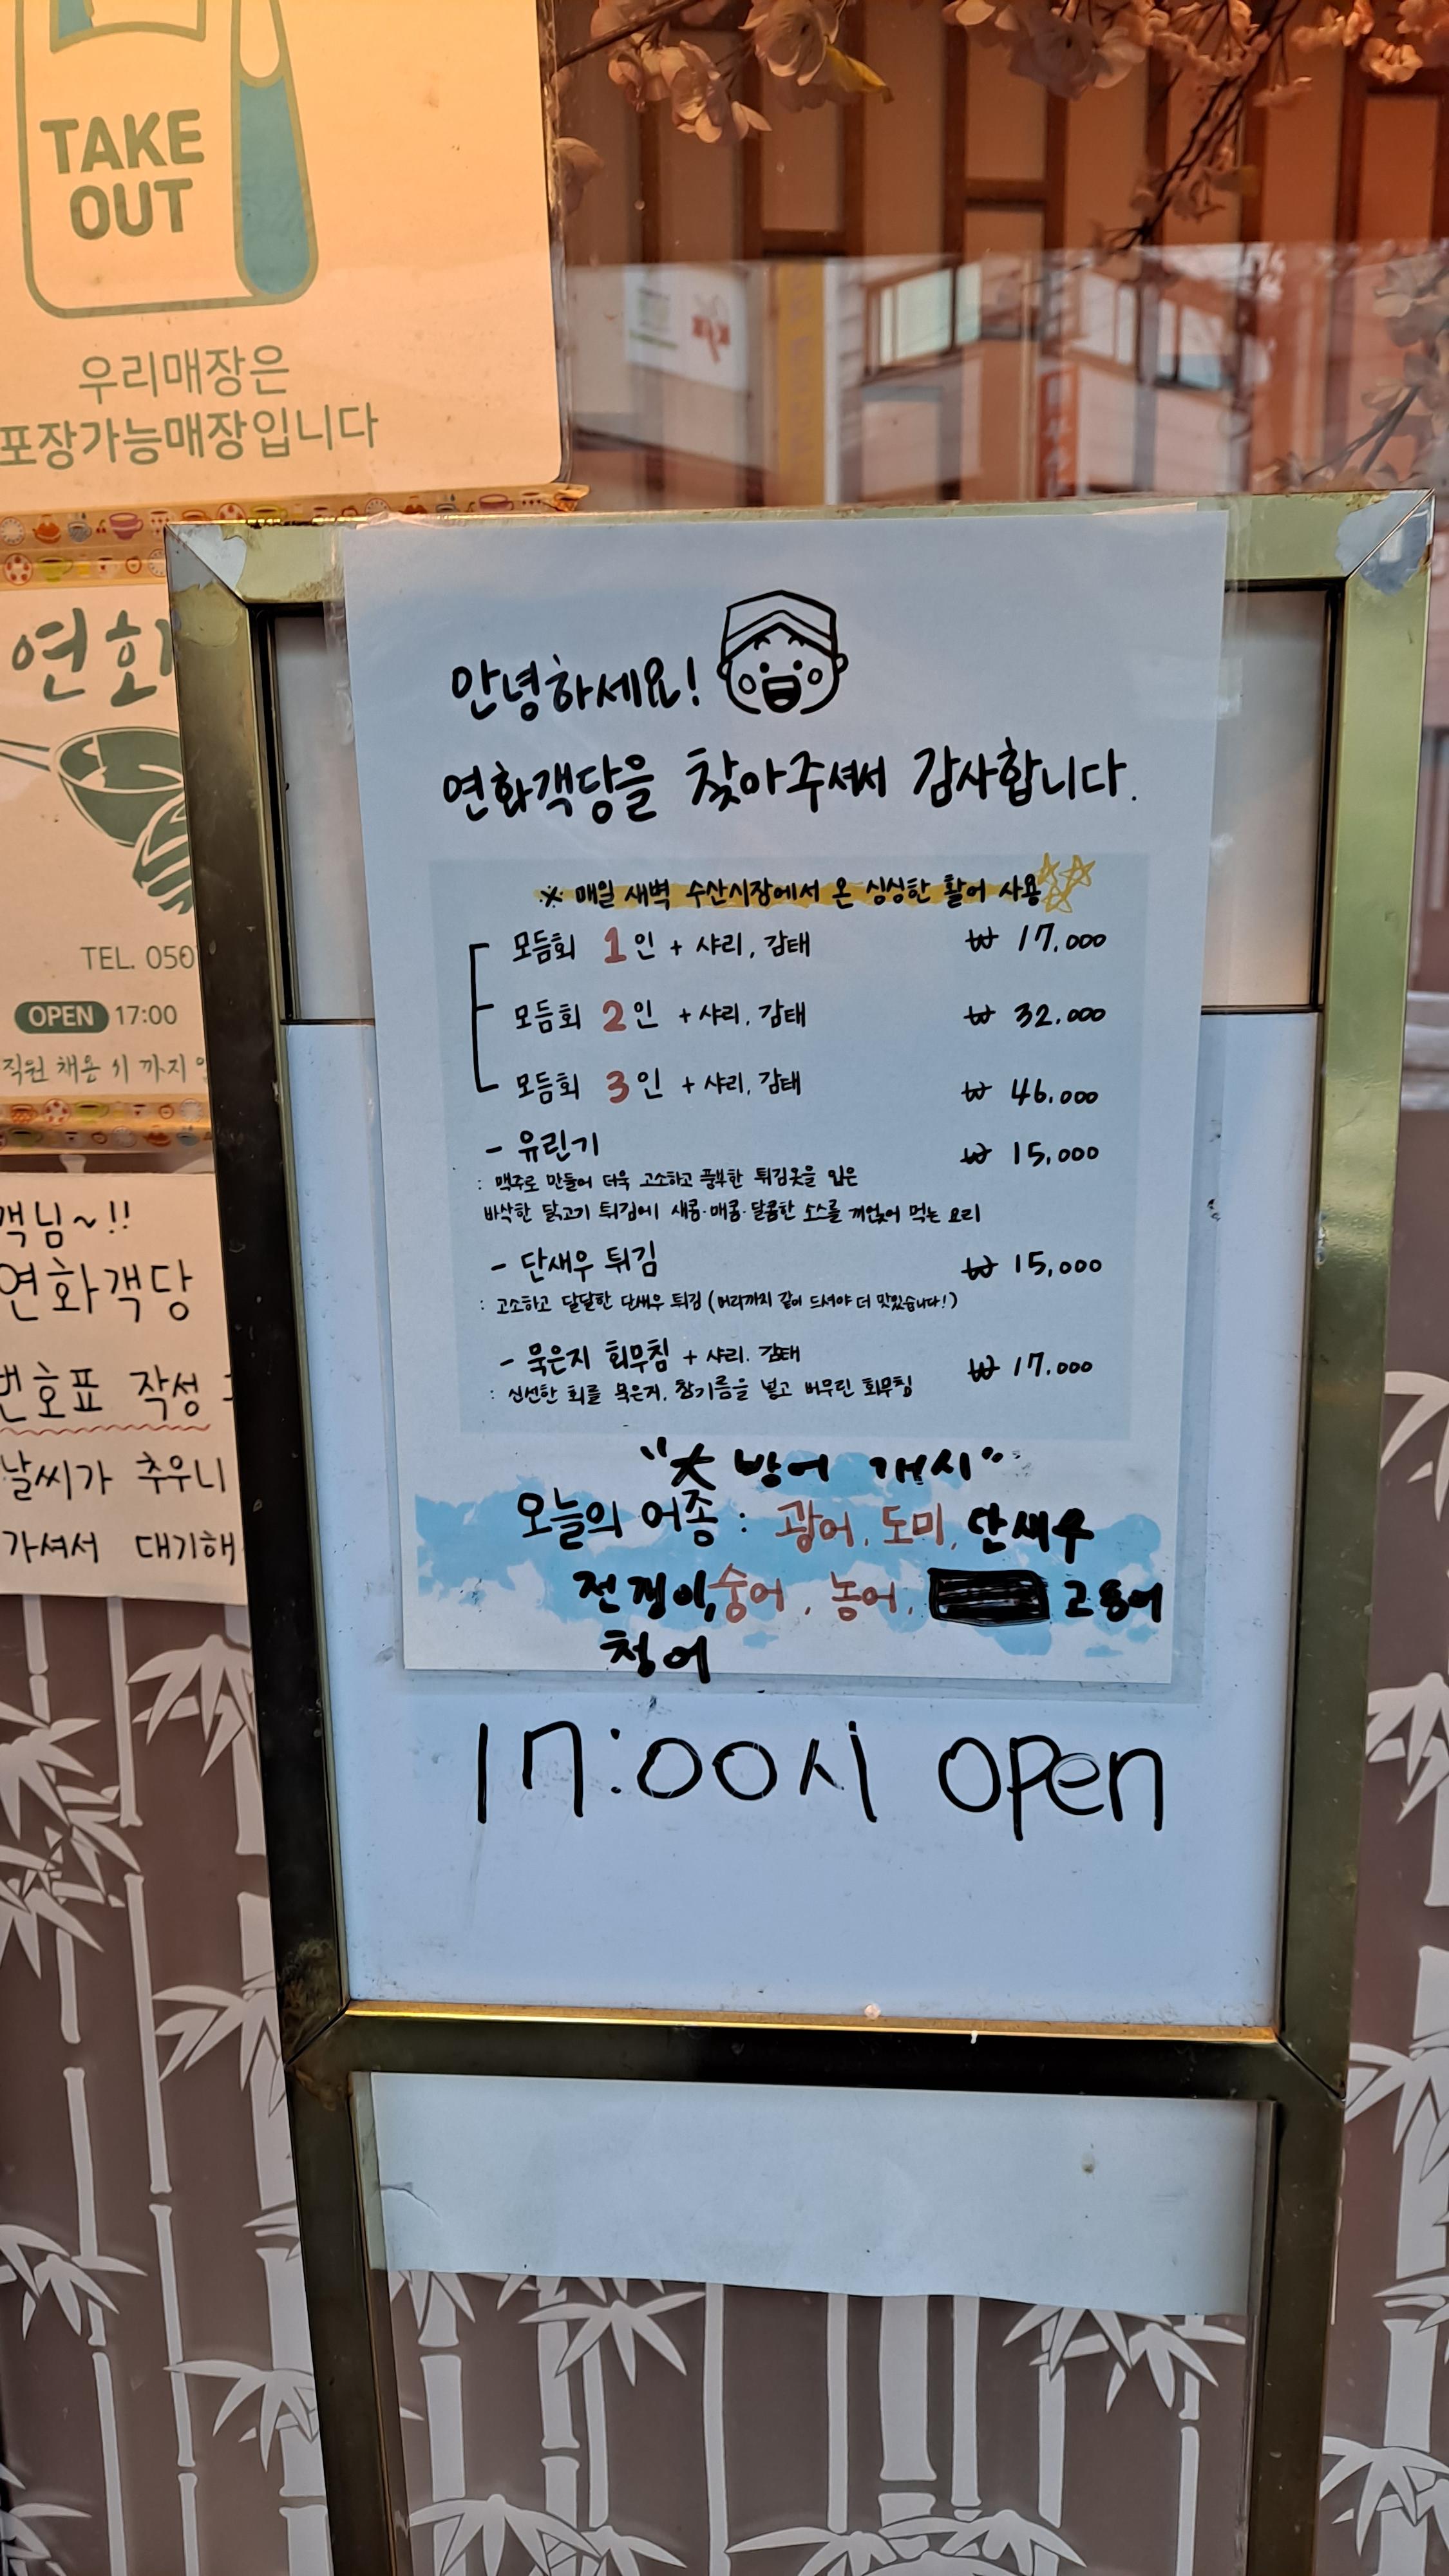 TAKE
OUT
우리매장은
포장가능매장입니다
연화
TEL. 050
OPEN 17:00
직원 채용 시 까지
객님~!!
연화객당
번호표 작성
날씨가 추우니
가셔서 대기해
안녕하세요!
연화객당을 찾아주셔서 감사합니다.
※ 매일 새벽 수산시장에서 온 싱싱한 활어 사용
모듬회 1인 + 샤리, 감태 ₩ 17.000
모듬회 2인 + 샤리, 감태 ₩ 32.000
모듬회 3인 + 샤리, 감태 ₩ 46.000
- 유린기 ₩ 15,000
: 맥주로 만들어 더욱 고소하고 풍부한 튀김옷을 입은
바삭한 닭고기 튀김에 새콤·매콤·달콤한 소스를 끼얹어 먹는 요리
- 단새우 튀김 ₩ 15,000
: 고소하고 달달한 단새우 튀김 (머리까지 같이 드셔야 더 맛있습니다!)
- 묵은지 회무침 + 샤리. 감태 ₩ 17.000
: 신선한 회를 묵은지, 참기름을 넣고 버무린 회무침
"大 방어 개시"
오늘의 어종 : 광어, 도미, 단새우
전갱이, 숭어, 농어, 고등어
청어
17:00시 open